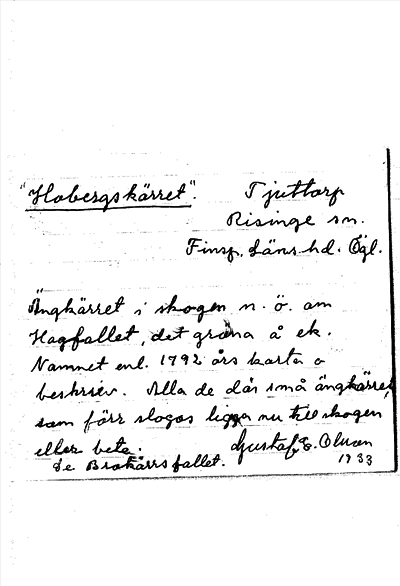 "Hobergskärret". Tjuttorp
Risinge sn.
Finsp. Läns hd. Ögl.
Ängkärret i skogen n. ö. om
Hagfallet, det gröna å ek.
Namnet enl. 1792 års karta o
beskriv. Alla de där små ängkärret,
som förr slogos ligga nu till skogen
eller bete.
Se Brokärrsfallet. Gustaf E. Olsson
1933